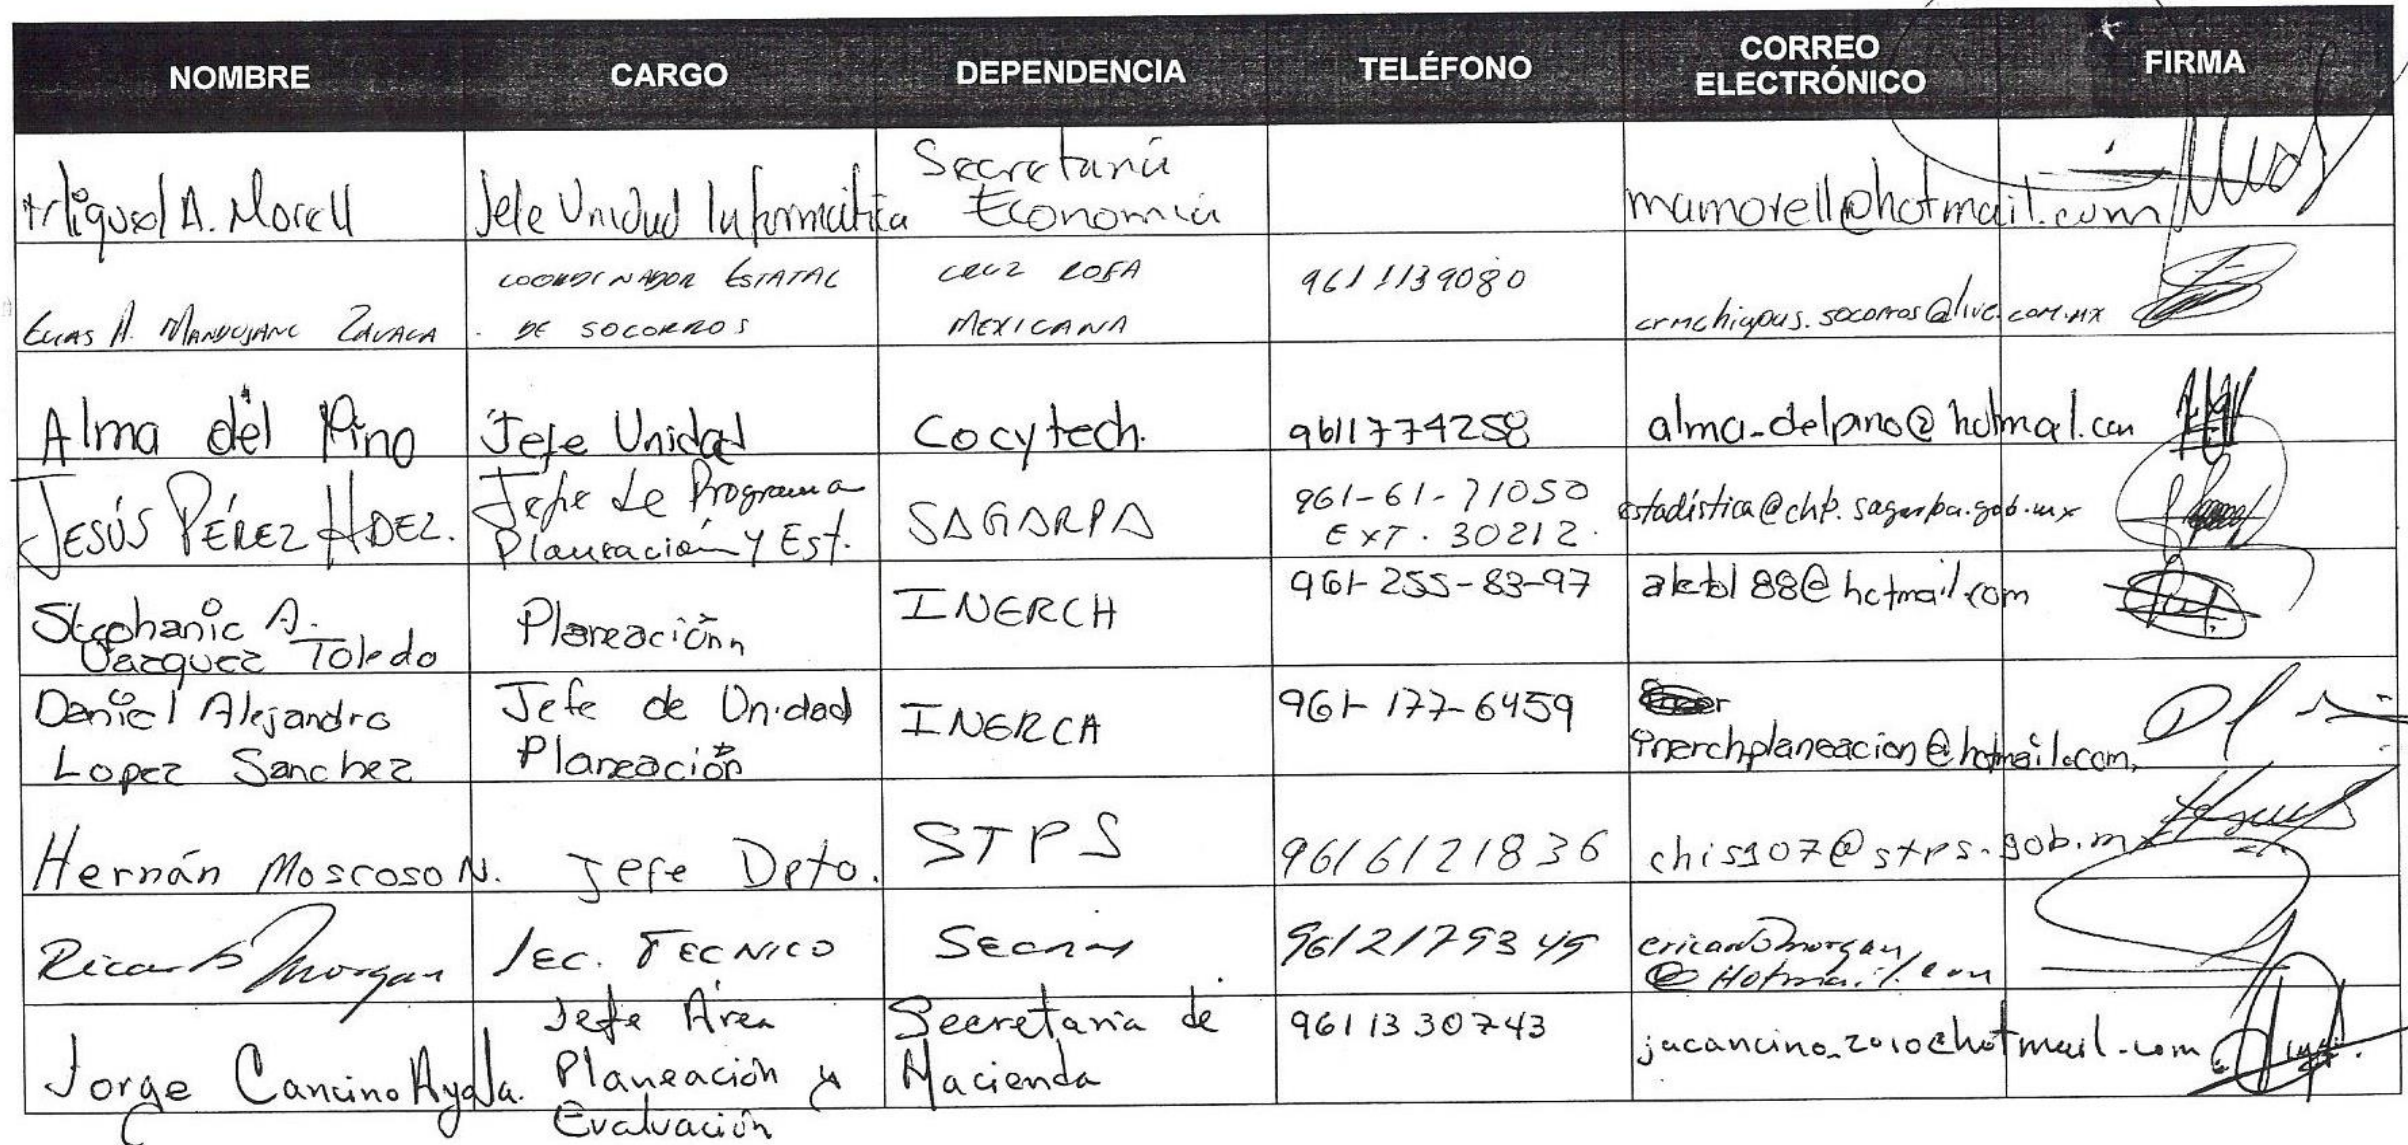 NOMBRE CARGO DEPENDENCIA TELÉFONO CORREO ELECTRÓNICO FIRMA
Miguel A. Morell Jefe Unidad Informática Secretaría Economía mamorell@hotmail.com
Elias A. Mandujano Zavala COORDINADOR ESTATAL DE SOCORROS CRUZ ROJA MEXICANA 9611139080 crmchiapas.socorros@live.com.mx
Alma del Pino Jefe Unidad Cocytech. 9611774258 alma_delpino@hotmail.com
JESÚS PÉREZ HDEZ. Jefe de Programa Planeación y Est. SAGARPA 961-61-71050 EXT. 30212. estadística@chp.sagarpa.gob.mx
Stephanie A. Vazquez Toledo Planeación INERCH 961-255-83-97 aketol88@hotmail.com
Daniel Alejandro Lopez Sanchez Jefe de Unidad Planeación INERCA 961-177-6459 inerchplaneacion@hotmail.com,
Hernán Moscoso N. Jefe Dpto. STPS 9616121836 chis107@stps.gob.mx
Ricardo Morgan Sec. TECNICO 9612179349 ericardomorgan@Hotmail.com
Jorge Cancino Ayala. Jefe Área Planeación y Evaluación Secretaria de Hacienda 9611330743 jacancino_2010@hotmail.com